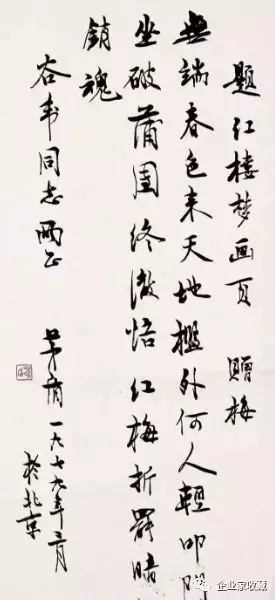 题红楼梦画页 赠梅
無端春色来天地槛外何人轻叩
坐破蒲團终澈悟红梅折罢暗
銷魂
谷韦同志两正
茅盾一九七九年二月
於北京
企业家收藏